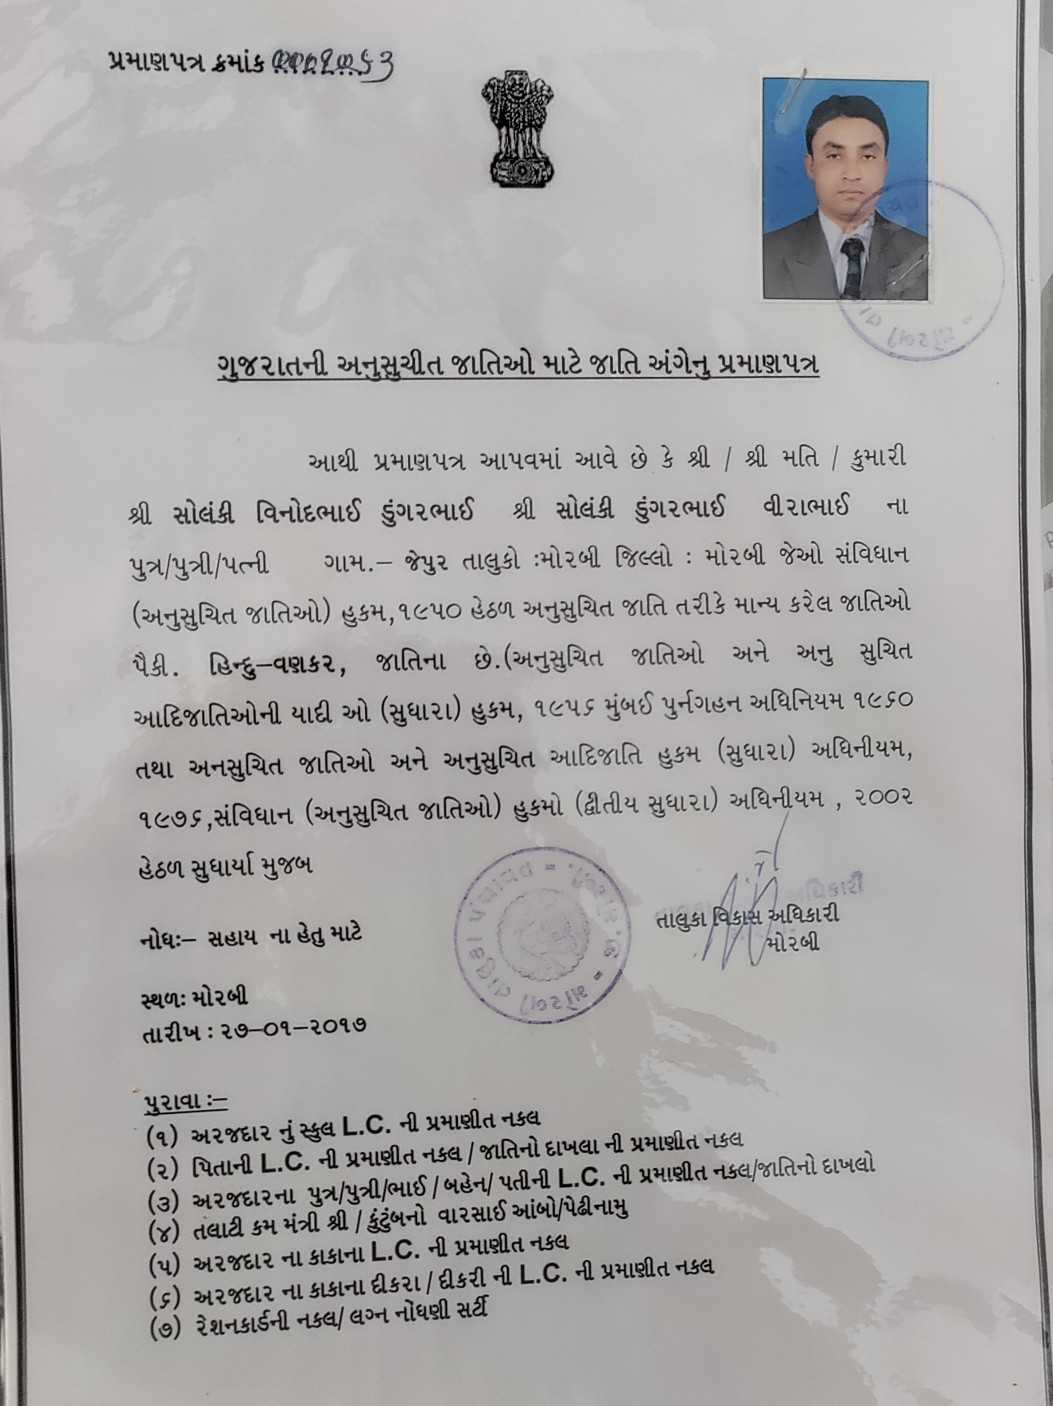 પ્રમાણપત્ર ક્રમાંક
ગુજરાતની અનુસુચીત જાતિઓ માટે જાતિ અંગેનુ પ્રમાણપત્ર
આથી પ્રમાણપત્ર આપવમાં આવે છે કે શ્રી / શ્રી મતિ / કુમારી
શ્રી સોલંકી વિનોદભાઈ ડુંગરભાઈ શ્રી સોલંકી ડુંગરભાઈ વીરાભાઈ ના
પુત્ર/પુત્રી/પત્ની ગામ.– જેપુર તાલુકો :મોરબી જિલ્લો : મોરબી જેઓ સંવિધાન
(અનુસુચિત જાતિઓ) હુકમ,૧૯૫૦ હેઠળ અનુસુચિત જાતિ તરીકે માન્ય કરેલ જાતિઓ
પૈકી. હિન્દુ–વણકર, જાતિના છે.(અનુસુચિત જાતિઓ અને અનુ સુચિત
આદિજાતિઓની યાદી ઓ (સુધારા) હુકમ, ૧૯૫૬ મુંબઈ પુર્નગહન અધિનિયમ ૧૯૬૦
તથા અનસુચિત જાતિઓ અને અનુસુચિત આદિજાતિ હુકમ (સુધારા) અધિનીયમ,
૧૯૭૬,સંવિધાન (અનુસુચિત જાતિઓ) હુકમો (દ્વીતીય સુધારા) અધિનીયમ , ૨૦૦૨
હેઠળ સુધાર્યા મુજબ
તાલુકા વિકાસ અધિકારી
મોરબી
નોધઃ– સહાય ના હેતુ માટે
સ્થળઃ મોરબી
તારીખ : ૨૭–૦૧–૨૦૧૭
પુરાવા :–
(૧) અરજદાર નું સ્કુલ L.C. ની પ્રમાણીત નકલ
(૨) પિતાની L.C. ની પ્રમાણીત નકલ / જાતિનો દાખલા ની પ્રમાણીત નકલ
(૩) અરજદારના પુત્ર/પુત્રી/ભાઈ / બહેન/ પતીની L.C. ની પ્રમાણીત નકલ/જાતિનો દાખલો
(૪) તલાટી કમ મંત્રી શ્રી / કુંટુંબનો વારસાઈ આંબો/પેઢીનામુ
(૫) અરજદાર ના કાકાના L.C. ની પ્રમાણીત નકલ
(૬) અરજદાર ના કાકાના દીકરા / દીકરી ની L.C. ની પ્રમાણીત નકલ
(૭) રેશનકાર્ડની નકલ/ લગ્ન નોંધણી સર્ટી